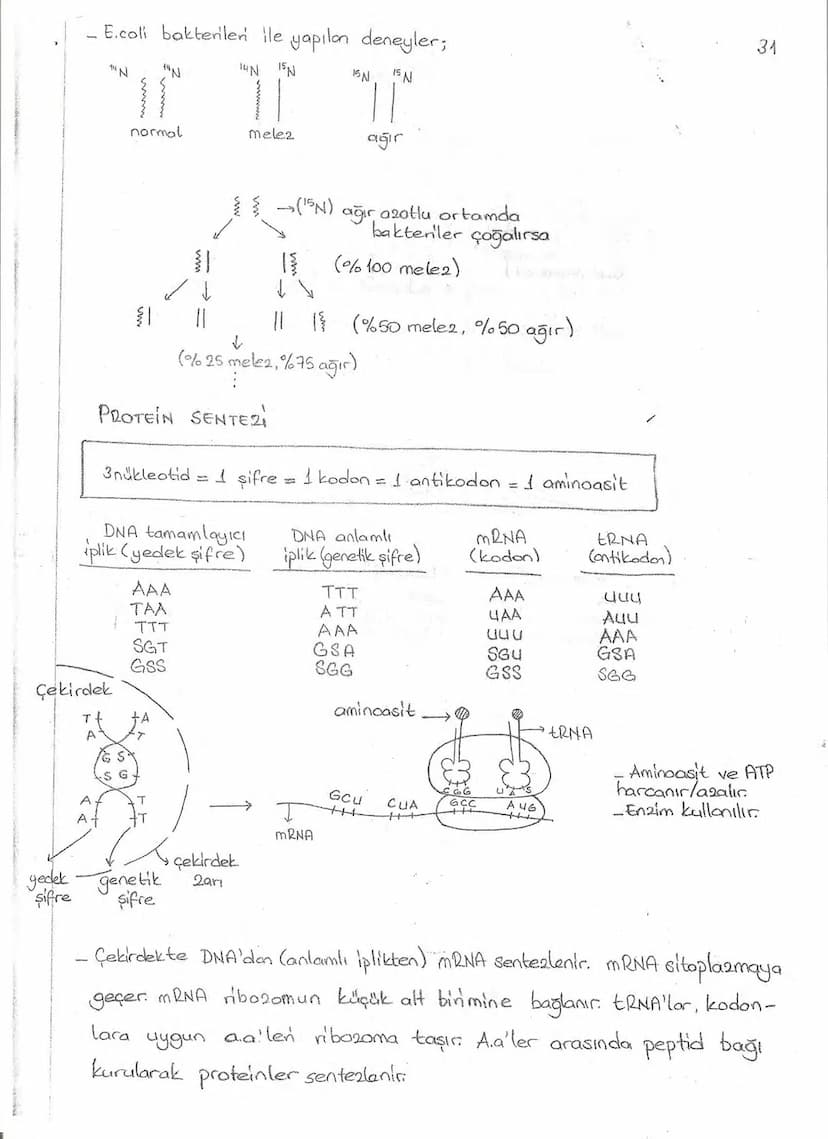 _ E.coli bakterileri ile yapılan deneyler;
31
¹⁴N ¹⁴N ¹⁴N ¹⁵N ¹⁵N ¹⁵N
normal melez ağır
→(¹⁵N) ağır azotlu ortamda
bakteriler çoğalırsa
(%100 melez)
(%50 melez, %50 ağır)
(%25 melez, %75 ağır)
PROTEİN SENTEZİ
3nükleotid = 1 şifre = 1 kodon = 1 antikodon = 1 aminoasit
DNA tamamlayıcı DNA anlamlı mRNA tRNA
iplik (yedek şifre) iplik (genetik şifre) (kodon) (antikodon)
AAA TTT AAA UUU
TAA ATT UAA AUU
TTT AAA UUU AAA
SGT GSA SGU GSA
GSS SGG GSS SGG
Çekirdek
aminoasit
tRNA
T A
A T
G S
S G
A T
A T
GCU CUA GCC AUG
CGG
mRNA
_ Aminoasit ve ATP
harcanır/azalır.
_Enzim kullanılır.
çekirdek
zarı
yedek
şifre
genetik
şifre
_ Çekirdekte DNA'dan (anlamlı iplikten) mRNA sentezlenir. mRNA sitoplazmaya
geçer. mRNA ribozomun küçük alt birimine bağlanır. tRNA'lar, kodon-
lara uygun a.a'leri ribozoma taşır. A.a'ler arasında peptid bağı
kurularak proteinler sentezlanir.